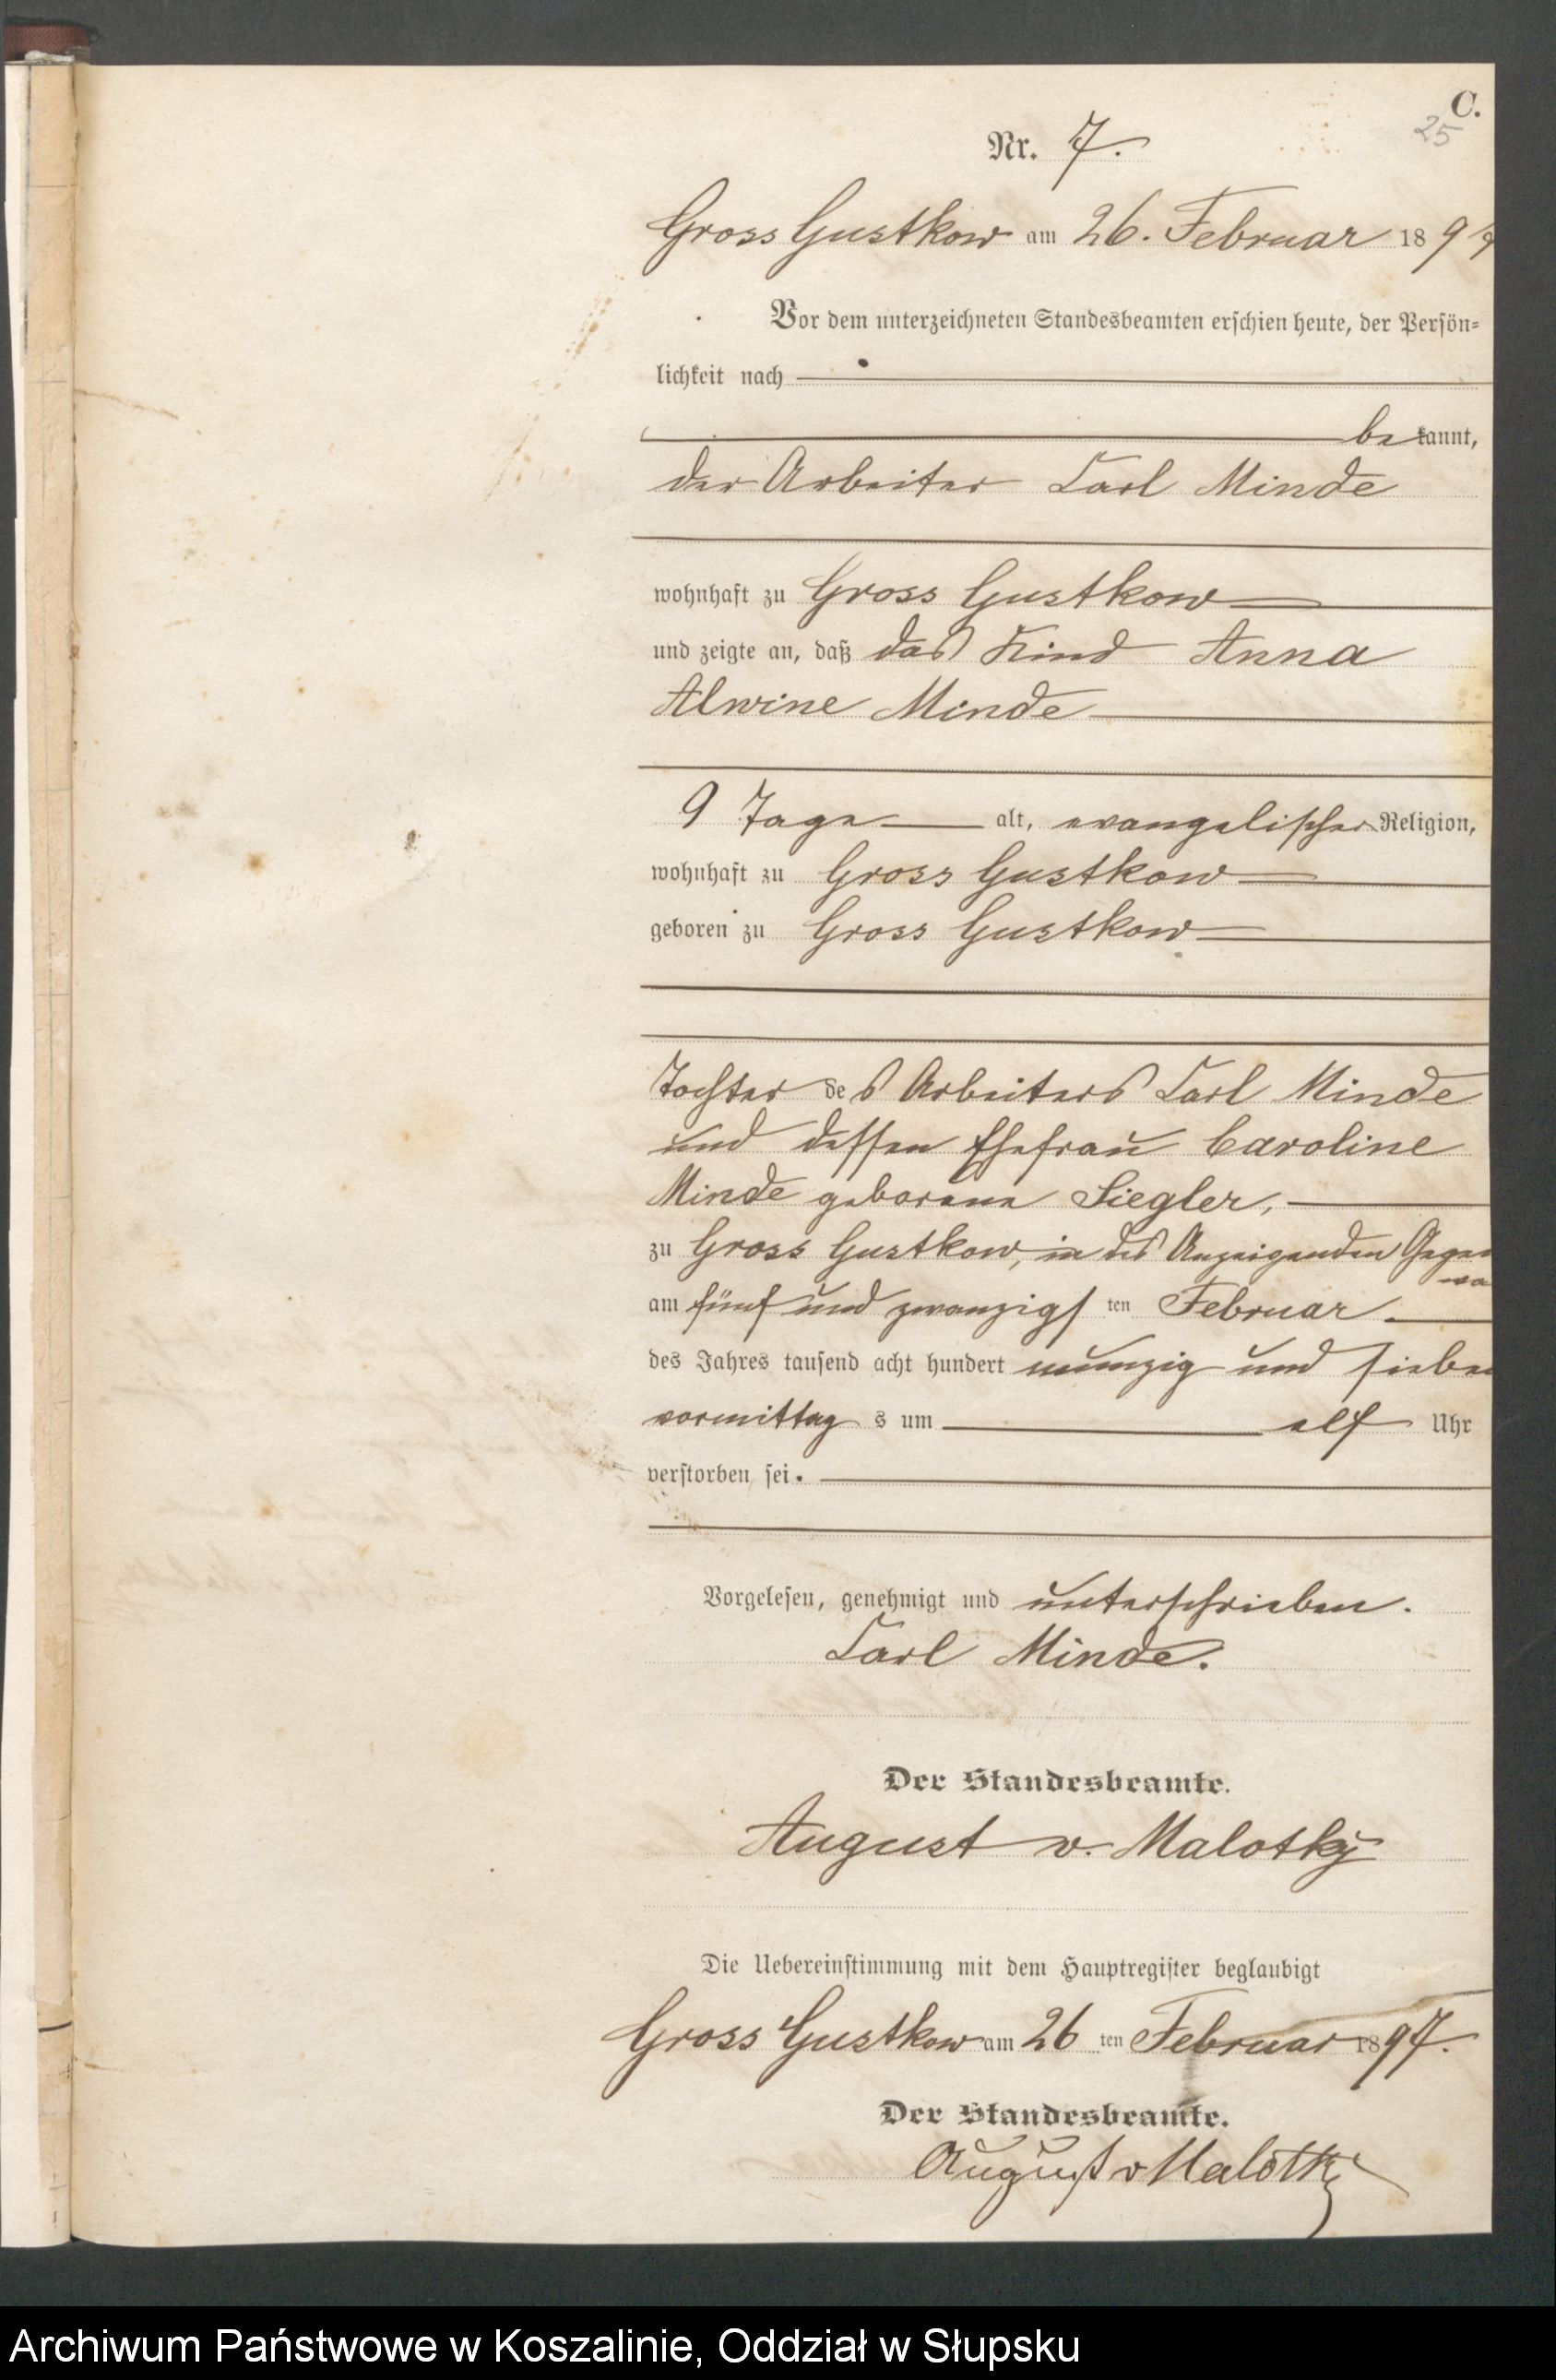 C.
25
Nr. 7.
Gross Gustkow am 26. Februar 1897
Vor dem unterzeichneten Standesbeamten erschien heute, der Persön=
lichkeit nach
be kannt,
der Arbeiter Carl Minde
wohnhaft zu Gross Gustkow
und zeigte an, daß das Kind Anna
Alwine Minde
9 Tage alt, evangelischer Religion,
wohnhaft zu Gross Gustkow
geboren zu Gross Gustkow
Tochter des Arbeiters Carl Minde
und dessen Ehefrau Caroline
Minde geborene Siegler,
zu Gross Gustkow, in des Anzeigenden Gegen
wa
am fünf und zwanzigs ten Februar
des Jahres tausend acht hundert neunzig und sieben
vormittag s um elf Uhr
verstorben sei.
Vorgelesen, genehmigt und unterschrieben.
Carl Minde.
Der Standesbeamte.
August v. Malotky
Die Uebereinstimmung mit dem Hauptregister beglaubigt
Gross Gustkow am 26 ten Februar 1897.
Der Standesbeamte.
August v Malotky
Archiwum Państwowe w Koszalinie, Oddział w Słupsku